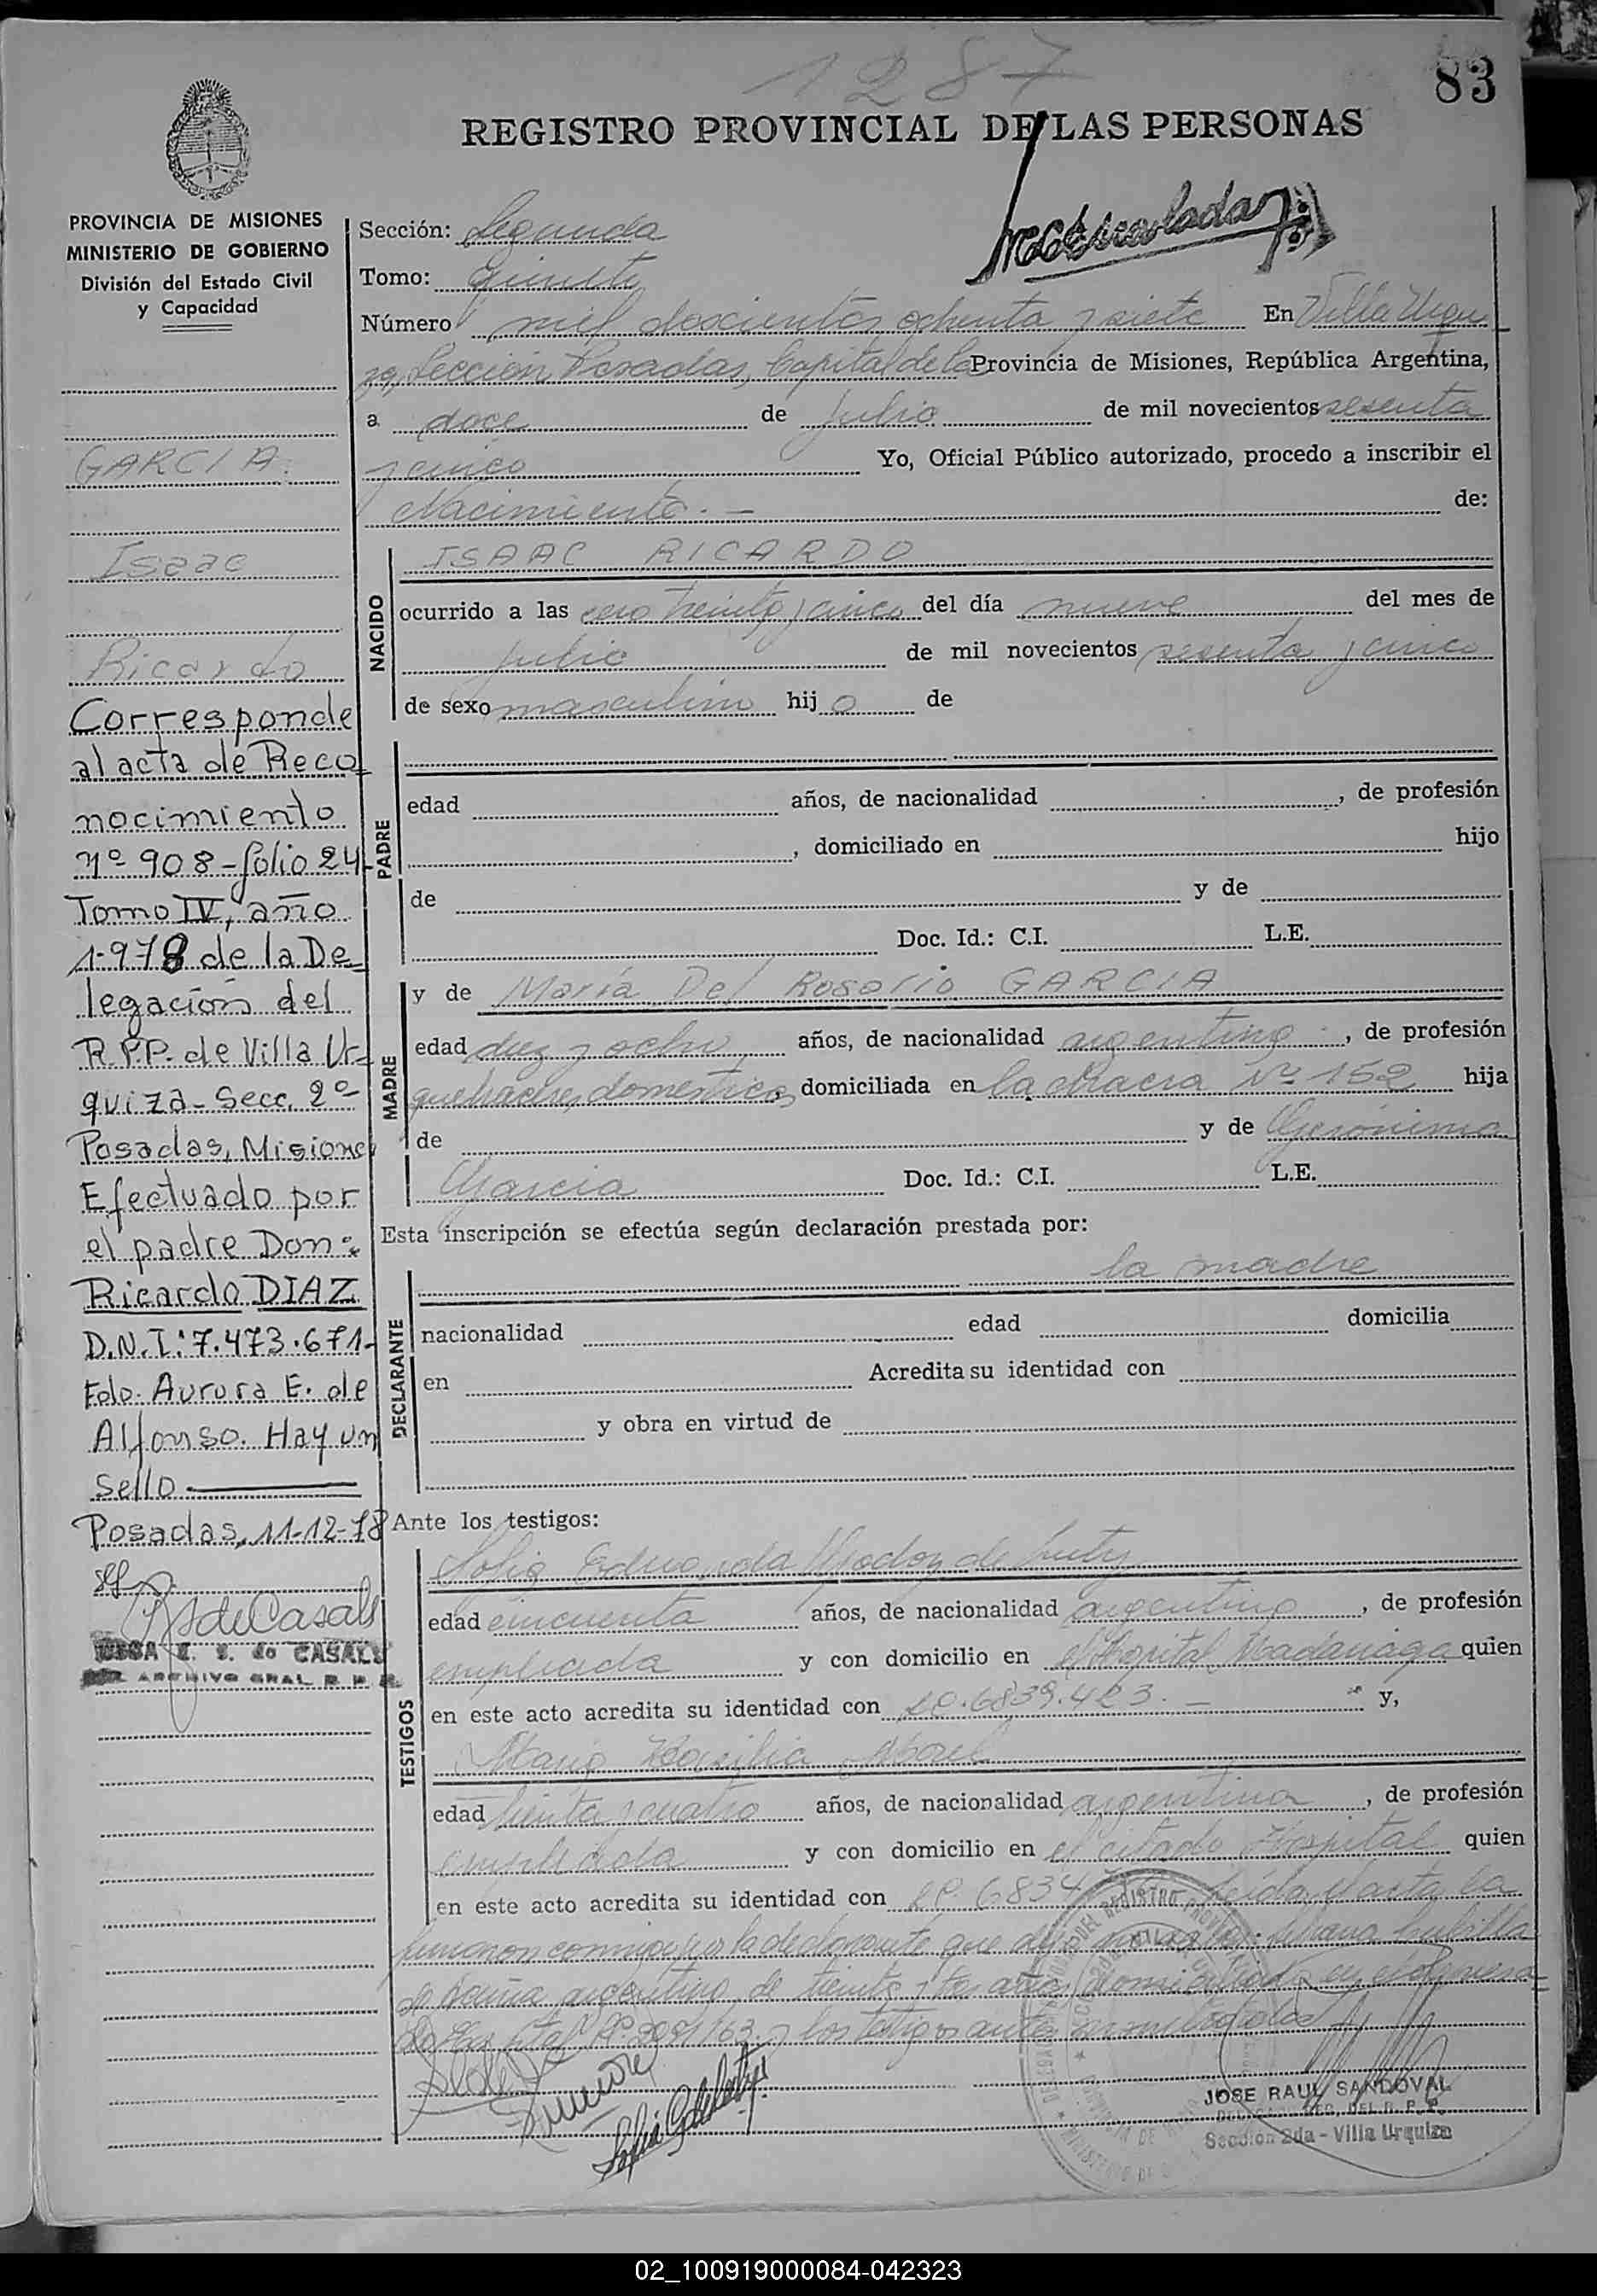 1287
83
REGISTRO PROVINCIAL DE LAS PERSONAS
PROVINCIA DE MISIONES
MINISTERIO DE GOBIERNO
División del Estado Civil
y Capacidad
GARCIA
Isaac
Ricardo
Corresponde
al acta de Reco
nocimiento
nº 908-folio 24-
Tomo IV, año
1.978 de la De
legación del
R.P.P. de Villa Ur-
quiza-Secc. 2º-
Posadas, Misiones
Efectuado por
el padre Don:
Ricardo DIAZ
D.N.I: 7.473.671-
Fdo. Aurora E. de
Alfonso. Hay un
sello
Posadas, 11-12-78
de CASALS
ARCHIVO GRAL. R. P. P.
Sección: Segunda
Tomo: quinto
Número mil doscientos ochenta y siete En Villa Urqui
za, Sección Posadas, Capital de la Provincia de Misiones, República Argentina,
a doce de julio de mil novecientos sesenta
y cinco Yo, Oficial Público autorizado, procedo a inscribir el
Nacimiento.— de:
NACIDO
ISAAC RICARDO
ocurrido a las cero treinta y cinco del día nueve del mes de
julio de mil novecientos sesenta y cinco
de sexo masculino hijo de
PADRE
edad años, de nacionalidad , de profesión
, domiciliado en hijo
de y de
Doc. Id.: C.I. L.E.
MADRE
y de María Del Rosario GARCIA
edad diez y ocho años, de nacionalidad argentina, de profesión
quehaceres domesticos, domiciliada en la chacra Nº 152 hija
de y de Gerónima
Garcia Doc. Id.: C.I. L.E.
Esta inscripción se efectúa según declaración prestada por:
DECLARANTE
la madre
nacionalidad edad domicilia
en Acredita su identidad con
y obra en virtud de
Ante los testigos:
TESTIGOS
Sofia Eduarda Godoy de
edad cincuenta años, de nacionalidad argentina, de profesión
empleada y con domicilio en el Hospital Madariaga quien
en este acto acredita su identidad con 6839.423.— y,
Maria
edad treinta y cuatro años, de nacionalidad argentina, de profesión
empleada y con domicilio en el citado Hospital quien
en este acto acredita su identidad con 6834 Leída el acta la
firmaron conmigo, por la declarante que
argentina, de treinta y tres años, domiciliada en
los testigos
JOSE RAUL SANDOVAL
Sección 2da - Villa Urquiza
02_100919000084-042323